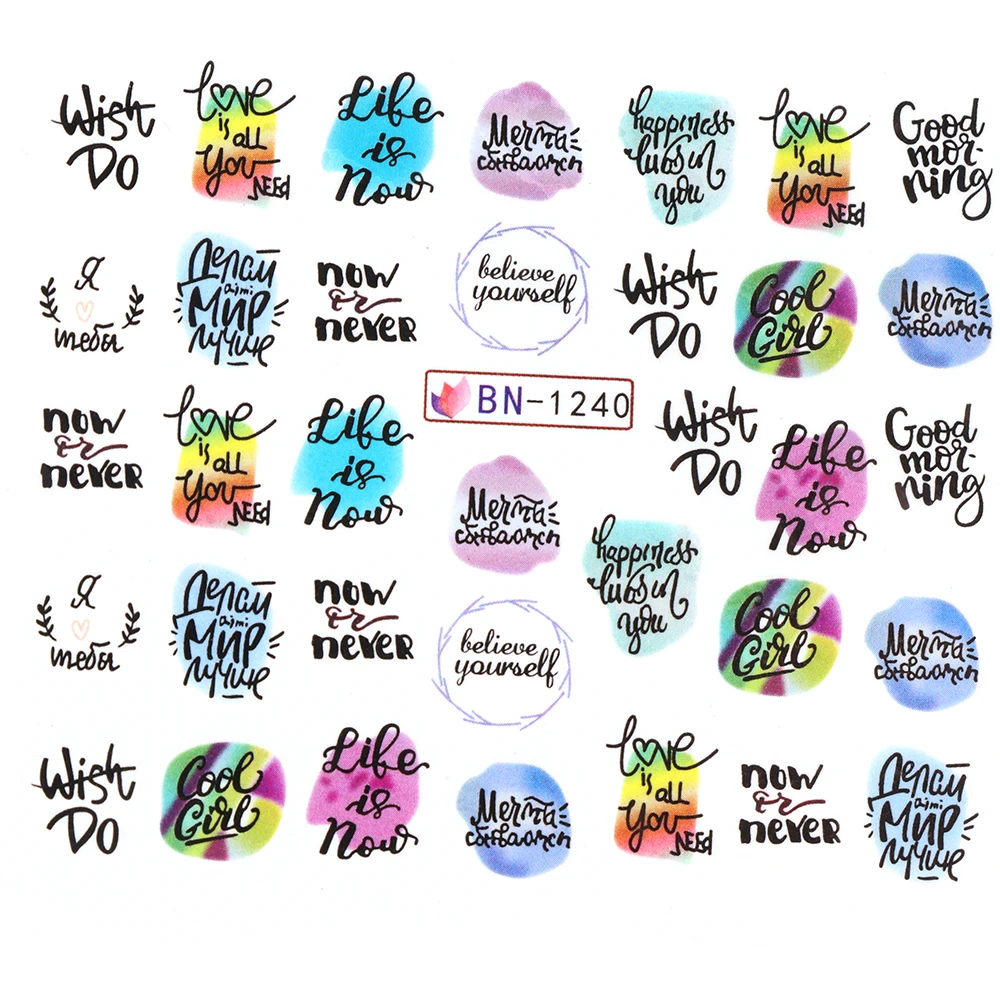 Wish
Do
Love
is all
You
NEED
Life
is
Now
Мечты
сбываются
happiness
lives in
you
Love
is all
You
NEED
Good
mor-
ning
Я
тебя
Делай
Мир
лучше
now
or
never
believe
yourself
Wish
Do
Cool
Girl
Мечты
сбываются
BN-1240
now
or
never
Love
is all
You
NEED
Life
is
Now
Мечты
сбываются
Wish
Do
Life
is
Now
Good
mor-
ning
Я
тебя
Делай
Мир
лучше
now
or
never
believe
yourself
happiness
lives in
you
Cool
Girl
Мечты
сбываются
Wish
Do
Cool
Girl
Life
is
Now
Мечты
сбываются
Love
is all
You
NEED
now
or
never
Делай
Мир
лучше